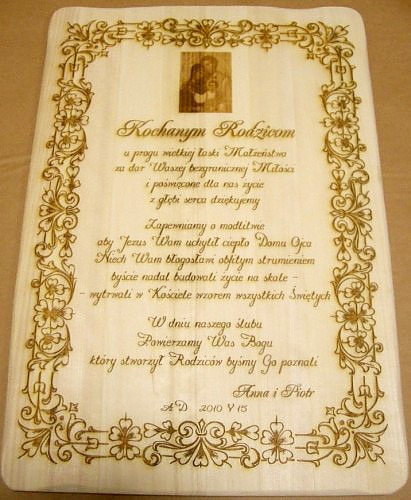 Kochanym Rodzicom
u progu wielkiej łaski Małżeństwa
za dar Waszej bezgranicznej Miłości
i poświęcone dla nas życie
z głębi serca dziękujemy
Zapewniamy o modlitwie
aby Jezus Wam uchylił ciepło Domu Ojca
Niech Wam błogosławi obfitym strumieniem
byście nadal budowali życie na skale -
- wytrwali w Kościele wzorem wszystkich Świętych
W dniu naszego ślubu
Powierzamy Was Bogu
który stworzył Rodziców byśmy Go poznali
Anna i Piotr
AD 2010 V 15